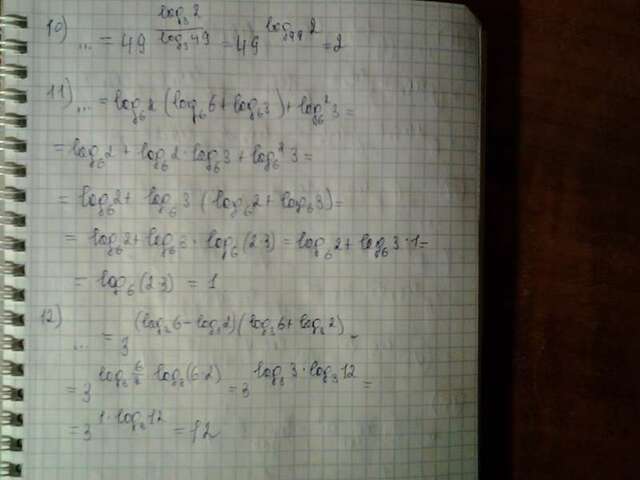 10) ... = 49^(log₃2 / log₃49) = 49^(log₄₉2) = 2
11) ... = log₆2 (log₆6 + log₆3) + log₆²3 =
= log₆2 + log₆2 · log₆3 + log₆²3 =
= log₆2 + log₆3 (log₆2 + log₆3) =
= log₆2 + log₆3 · log₆(2·3) = log₆2 + log₆3 · 1 =
= log₆(2·3) = 1
12) ... = 3^((log₃6 - log₃2)(log₃6 + log₃2)) =
= 3^(log₃(6/2) · log₃(6·2)) = 3^(log₃3 · log₃12) =
= 3^(1 · log₃12) = 12